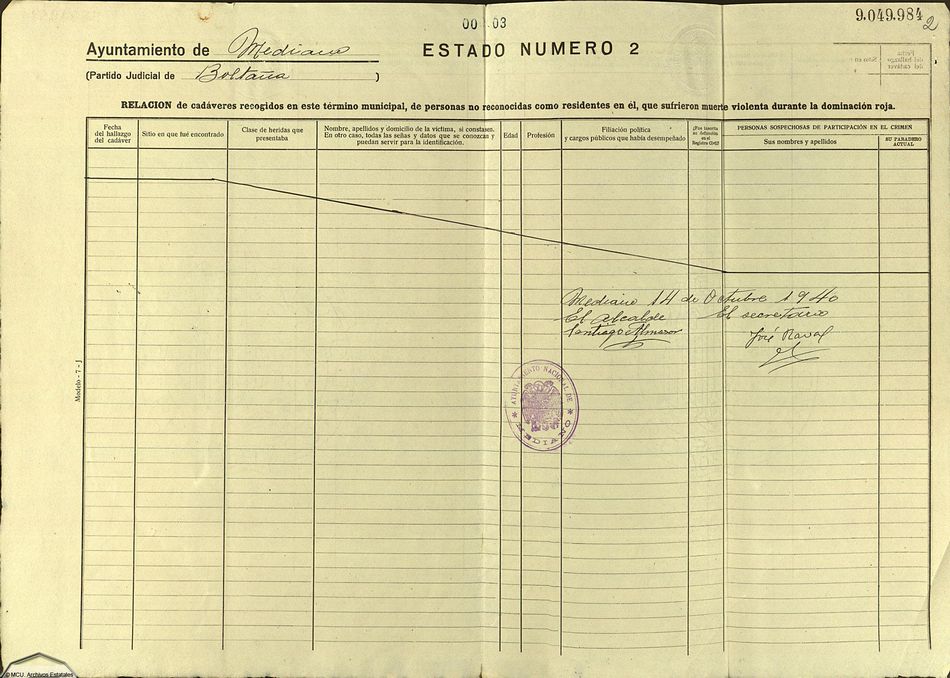 00 03
9.049.984
2
Ayuntamiento de Mediano
ESTADO NUMERO 2
(Partido Judicial de Boltaña )
RELACION de cadáveres recogidos en este término municipal, de personas no reconocidas como residentes en él, que sufrieron muerte violenta durante la dominación roja.
Fecha del hallazgo del cadáver
Sitio en que fué encontrado
Clase de heridas que presentaba
Nombre, apellidos y domicilio de la víctima, si constasen. En otro caso, todas las señas y datos que se conozcan y puedan servir para la identificación.
Edad
Profesión
Filiación política y cargos públicos que había desempeñado
¿Fue inscrita su defunción en el Registro Civil?
PERSONAS SOSPECHOSAS DE PARTICIPACIÓN EN EL CRIMEN
Sus nombres y apellidos
SU PARADERO ACTUAL
Mediano 14 de Octubre 1940
El alcalde El secretario
Santiago Almazor
José Naval
AYUNTAMIENTO NACIONAL DE
MEDIANO
Modelo - 7 - J
© MCU. Archivos Estatales